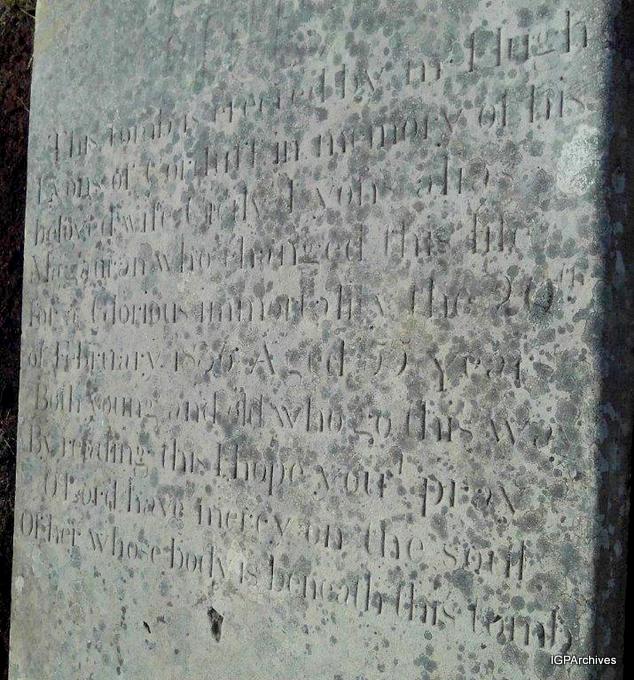 This tomb is erected by mr Hugh
Lyons of Cortuff in memory of his
beloved wife Cicily Lyons alias
Magauran who changed this life
for a Glorious immortality the 20th
of February 1836 Aged 55 years
Both young and old who go this way
By reading this I hope you'l pray
O Lord have mercy on the soul
Of her whose body is beneath this tomb
IGPArchives